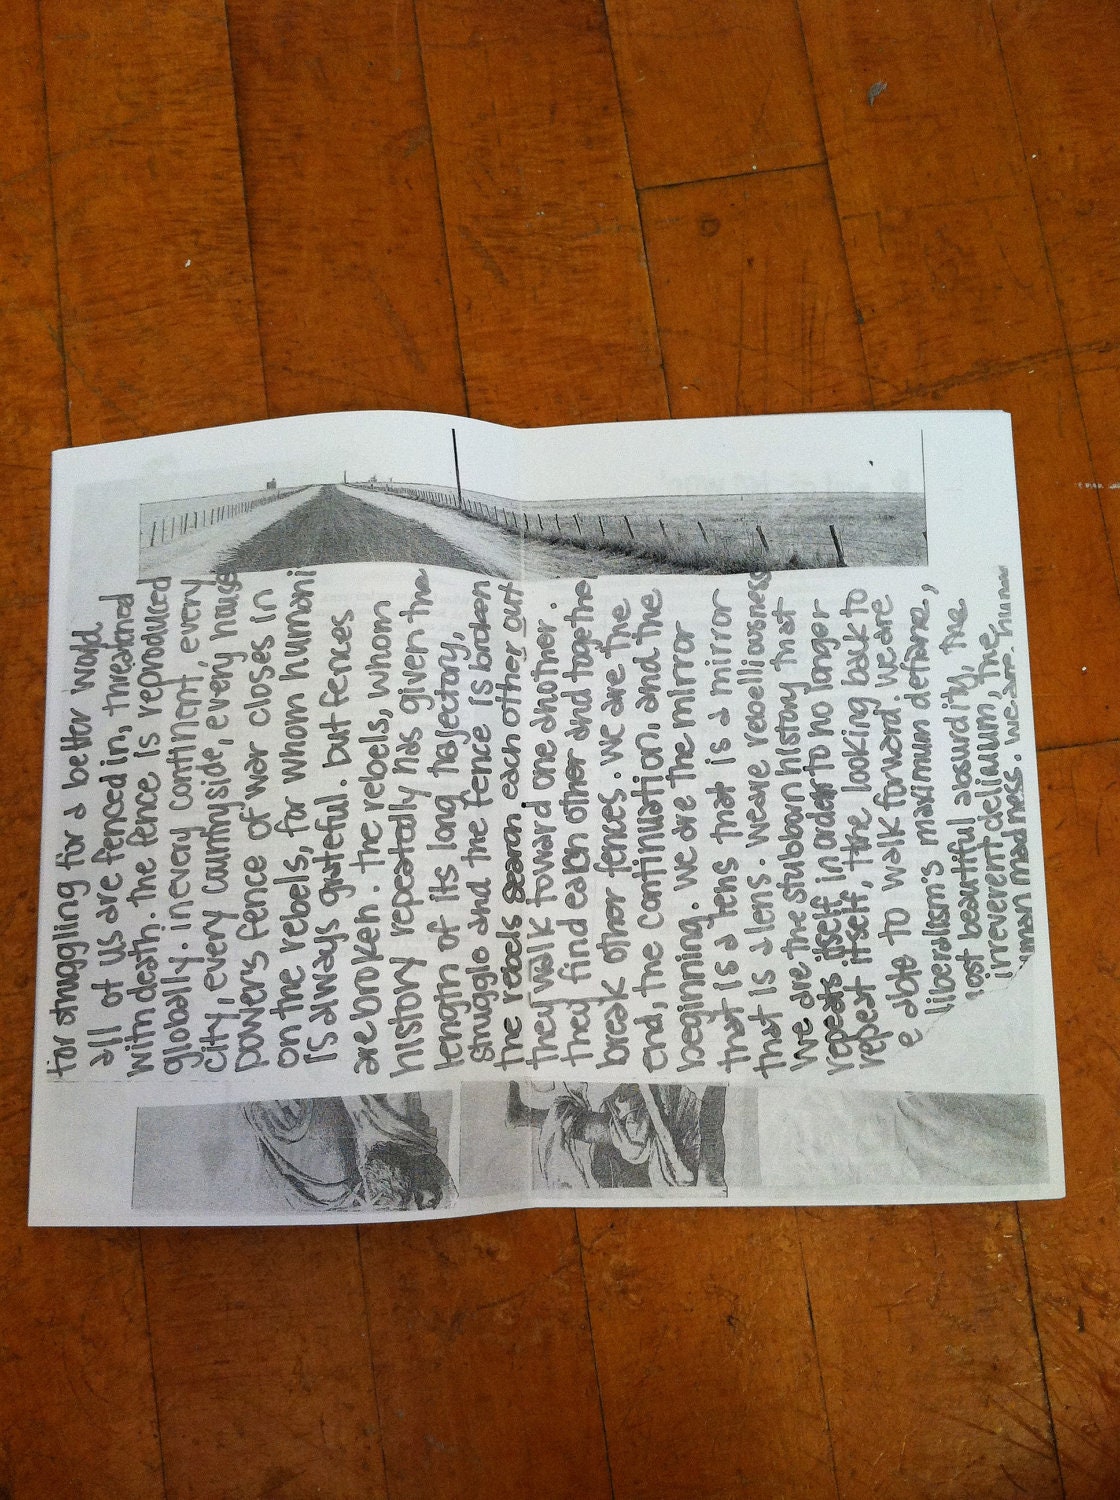 for struggling for a better world
all of us are fenced in, threatened
with death. the fence is reproduced
globally. in every continent, every
city, every countryside, every house
power's fence of war closes in
on the rebels, for whom humani
is always grateful. but fences
are broken. the rebels, whom
history repeatedly has given the
length of its long trajectory,
struggle and the fence is broken
the rebels search each other out
they walk toward one another.
they find each other and togethe
break other fences. we are the
end, the continuation, and the
beginning. we are the mirror
that is a lens that is a mirror
that is a lens. we are rebelliousness
we are the stubborn history that
repeats itself in order to no longer
repeat itself, the looking back to
e able to walk forward we are
liberalism's maximum defiance,
ost beautiful absurdity, the
irreverent delirium, the
uman madness. we are